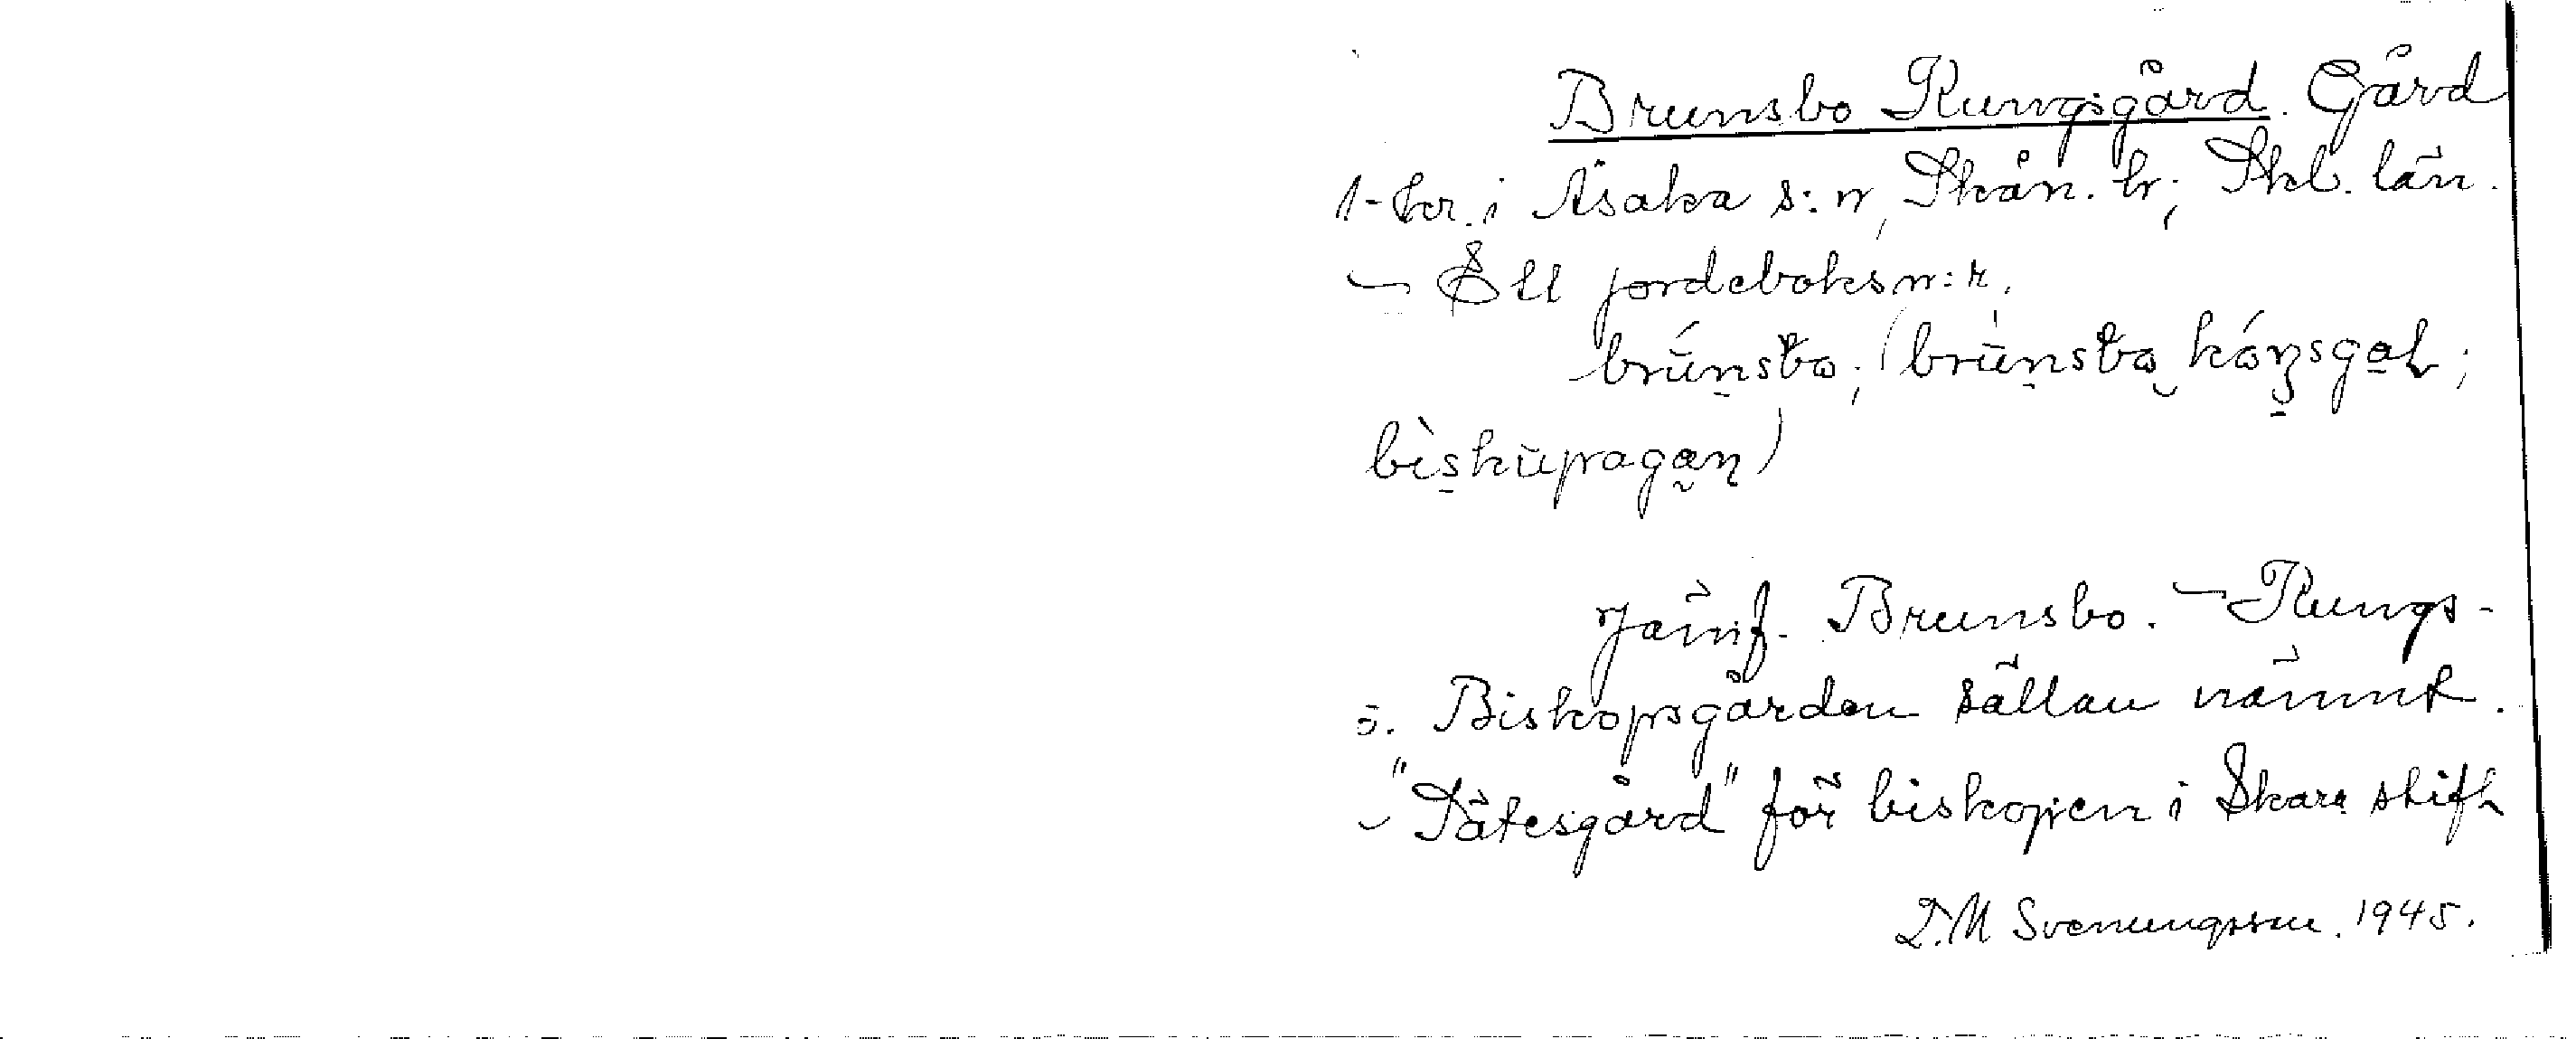 Brunsbo Kungsgård. Gård
1-br. i Åsaka s:n, Skån. hr; Skb. län.
– Ett jordeboksn:r.
brúnsbo; (brùnsbo kóŋsgaɫ;
bìskùpagaɳ)
Jämf. Brunsbo. – Kungs-
o. Biskopsgården sällan nämnt.
– "Sätesgård" för biskopen i Skara stift
L.M Svenungsson. 1945.